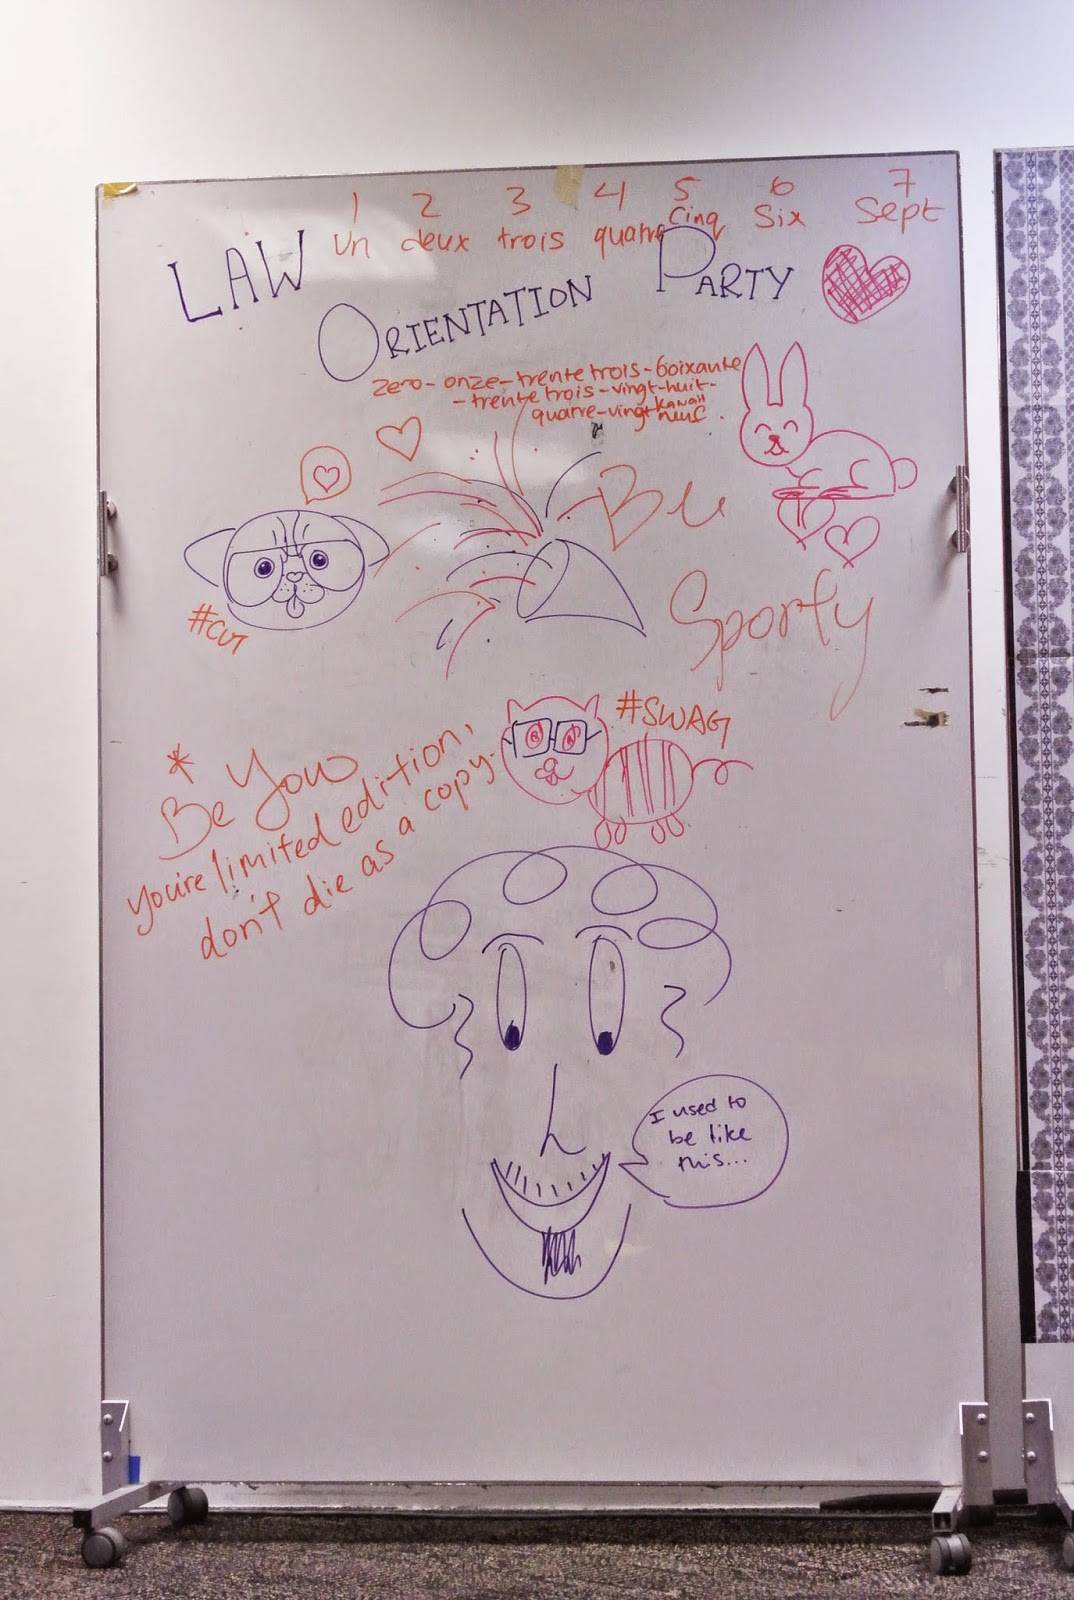 1 2 3 4 5 6 7
un deux trois quatre cinq six sept
LAW
ORIENTATION PARTY
zero-onze-trente trois-soixante
-trente trois-vingt-huit-
quatre-vingt neuf
Kawaii
Be
Sporty
#cut
#SWAG
* Be You
you're limited edition,
don't die as a copy.
I used to
be like
this...